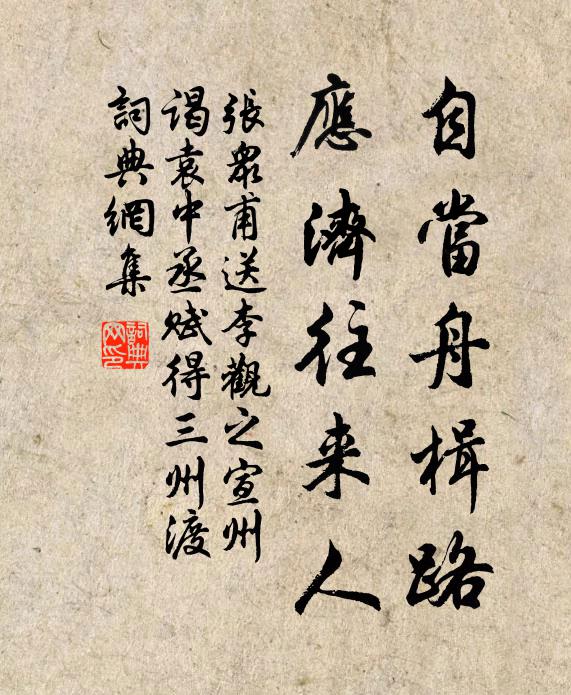 自當舟楫路
應濟往来人
張眾甫送李觀之宣州
謁袁中丞賦得三州渡
詞典網集
詞典
网印